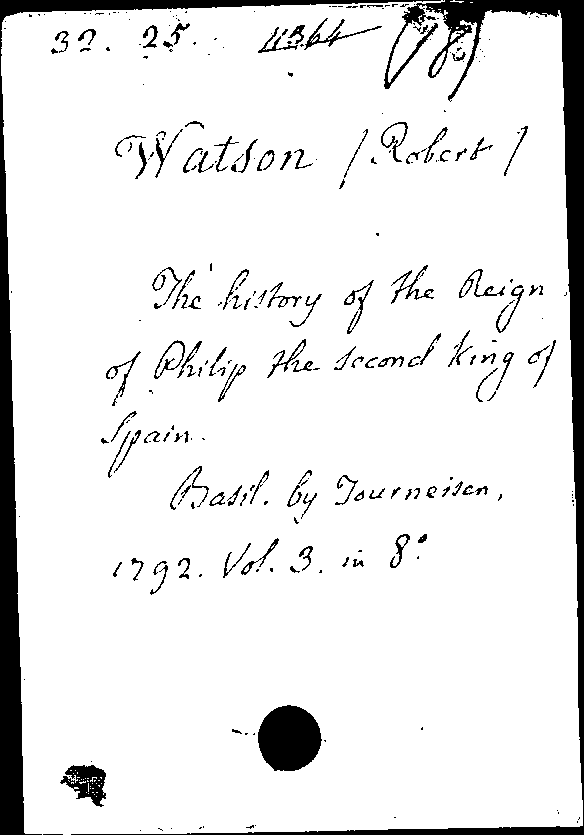 32. 25. 11364 (18)
Watson / Robert /
The history of the Reign
of Philip the second King of
Spain.
Basil. by Tourneisen,
1792. Vol. 3. in 8°